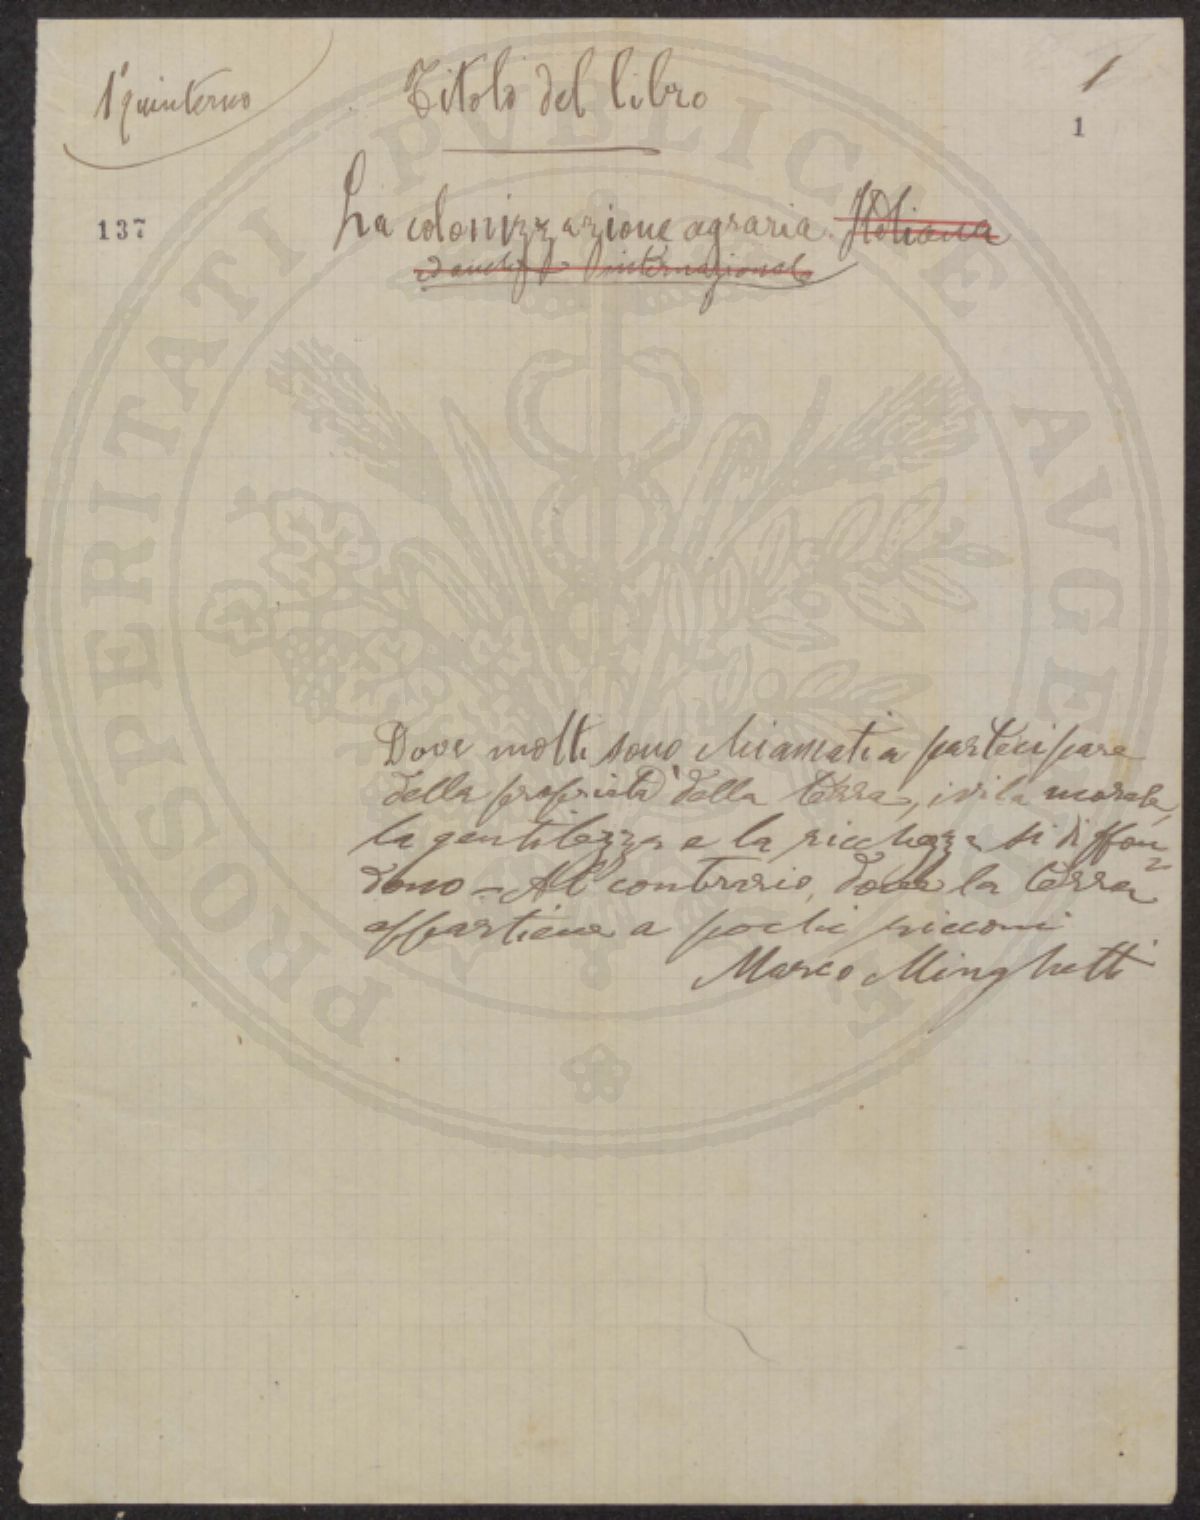 1° quinterno
Titolo del libro
1
1
137
La colonizzazione agraria Italiana
ed anche internazionale
Dove molti sono chiamati a partecipare
della proprietà della terra, ivi la morale,
la gentilezza e la ricchezza si diffon-
dono - Al contrario, dove la terra
appartiene a pochi ricconi
Marco Minghetti
PROSPERITATI PUBLICAE AVGENDAE